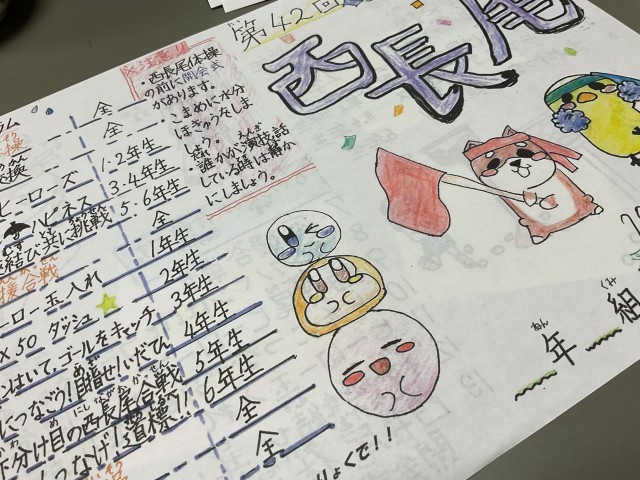 第42回
西長尾
※注意!!
・西長尾体操
の前に開会式
があります。
こまめに水分
ほきゅうをしま
しょう。
誰かが演技、話
している時は静か
にしましょう。
全
全
ヒーローズ 1・2年生
ハピネス 3・4年生
結び 共に挑戦 5・6年生
援合戦 全
ーロー玉入れ 1年生
×50 ダッシュ 2年生
はいて、ゴールをキャッチ 3年生
につなごう!目指せ!いだてん 4年生
分け目の西長尾合戦 5年生
つなげ!道標!! 6年生
全
全
年 組
ねん くみ
りょくで!!